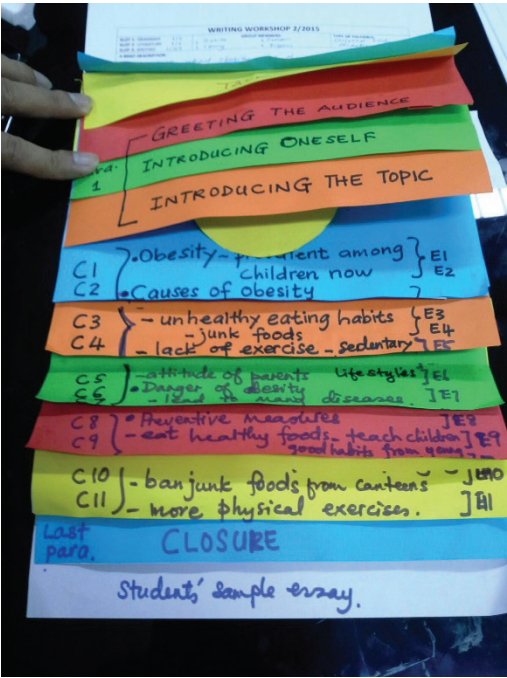 WRITING WORKSHOP 2/2015
GREETING THE AUDIENCE
1
INTRODUCING ONESELF
INTRODUCING THE TOPIC
C1 • Obesity - among E1
C2 children now E2
• Causes of obesity
C3 - unhealthy eating habits E3
C4 - junk foods E4
- lack of exercise - sedentary E5
C5 - attitude of parents lifestyles E6
C6 • Danger of obesity
- lead to many diseases. E7
C8 • Preventive measures E8
C9 - eat healthy foods - teach children E9
good habits from young
C10 - ban junk foods from canteens E10
C11 - more physical exercises. E11
Last
para. CLOSURE
Students' sample essay.